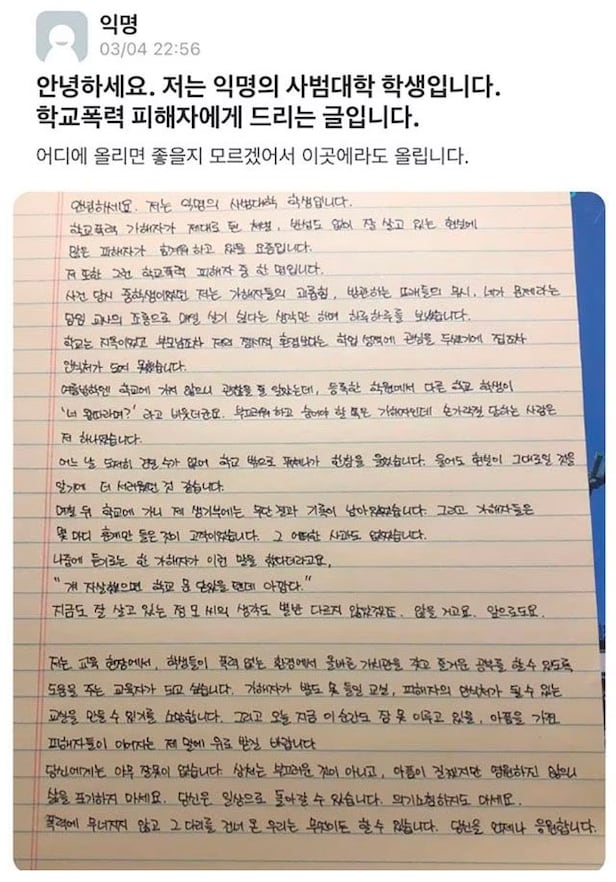 익명
03/04 22:56
안녕하세요. 저는 익명의 사범대학 학생입니다.
학교폭력 피해자에게 드리는 글입니다.
어디에 올리면 좋을지 모르겠어서 이곳에라도 올립니다.
안녕하세요. 저는 익명의 사범대학 학생입니다.
학교폭력 가해자가 제대로 된 처벌, 반성도 없이 잘 살고 있는 현실에
많은 피해자가 힘겨워 하고 있을 요즘입니다.
저 또한 그런 학교폭력 피해자 중 한 명입니다.
사건 당시 중학생이었던 저는 가해자들의 괴롭힘, 방관하는 또래들의 무시, 네가 문제라는
담임 교사의 조롱으로 매일 살기 싫다는 생각만 하며 하루하루를 보냈습니다.
학교는 지옥이었고 부모님조차 저의 정서적 환경보다는 학업 성적에 관심을 두셨기에 집조차
안식처가 되지 못했습니다.
여름방학엔 학교에 가지 않으니 괜찮을 줄 알았는데, 등록한 학원에서 다른 학교 학생이
'너 왕따라며?' 라고 비웃더군요. 부끄러워 하고 숨어야 할 쪽은 가해자인데 손가락질 당하는 사람은
저 하나였습니다.
어느 날 도저히 견딜 수가 없어 학교 밖으로 뛰쳐나가 한참을 울었습니다. 울어도 현실이 그대로일 것을
알기에 더 서러웠던 것 같습니다.
며칠 뒤 학교에 가니 제 생기부에는 무단 결과 기록이 남아있었습니다. 그리고 가해자들은
몇 마디 훈계만 들은 것이 고작이었습니다. 그 어떠한 사과도 없었습니다.
나중에 듣기로는 한 가해자가 이런 말을 했다더라고요.
"걔 자살했으면 학교 못 다녔을 텐데 아깝다."
지금도 잘 살고 있는 정 모 씨의 생각도 별반 다르지 않았겠죠. 않을 거고요. 앞으로도요.
저는 교육 현장에서, 학생들이 폭력 없는 환경에서 올바른 가치관을 갖고 즐거운 공부를 할 수 있도록
도움을 주는 교육자가 되고 싶습니다. 가해자가 발도 못 들일 교실, 피해자의 안식처가 될 수 있는
교실을 만들 수 있기를 소망합니다. 그리고 오늘 지금 이 순간도 잠 못 이루고 있을, 아픔을 가진
피해자들이 이어지는 제 말에 위로 받길 바랍니다
당신에게는 아무 잘못이 없습니다. 상처는 부끄러운 것이 아니고, 아픔이 길겠지만 영원하진 않으니
삶을 포기하지 마세요. 당신은 일상으로 돌아갈 수 있습니다. 의기소침하지도 마세요.
폭력에 무너지지 않고 그 다리를 건너 온 우리는 무엇이든 할 수 있습니다. 당신을 언제나 응원합니다.